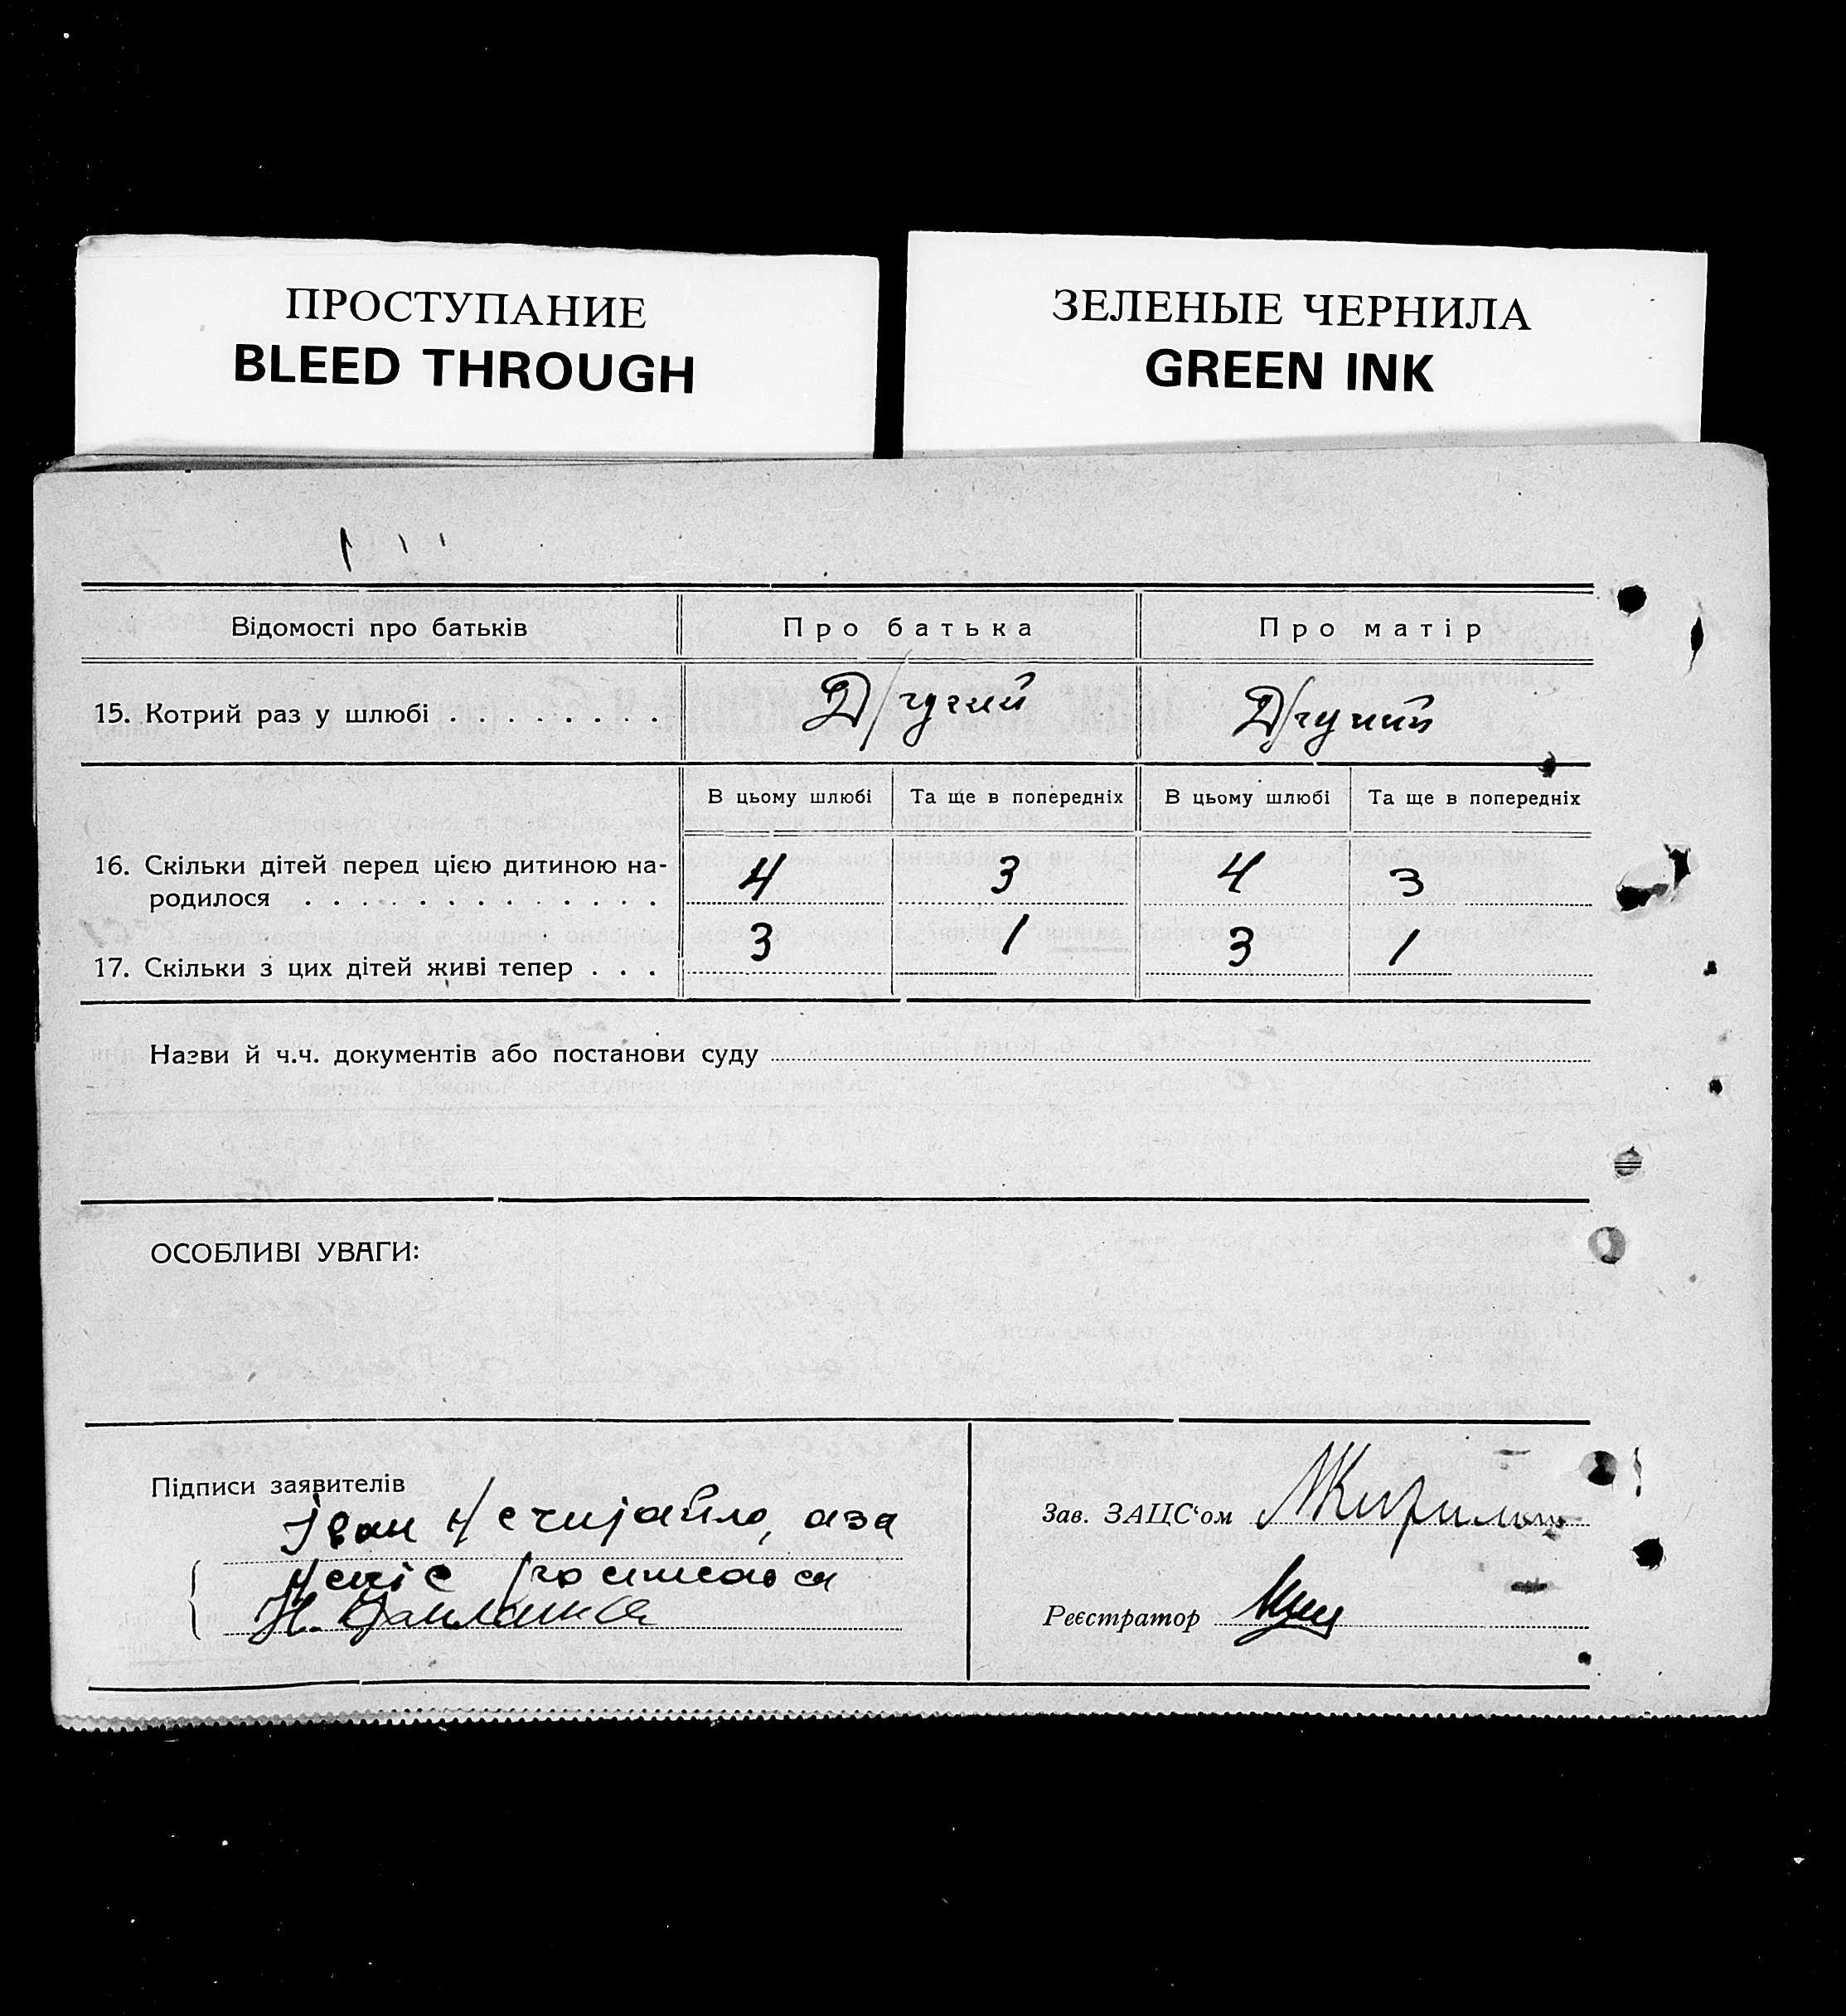 ПРОСТУПАНИЕ
BLEED THROUGH
ЗЕЛЕНЫЕ ЧЕРНИЛА
GREEN INK
Відомості про батьків Про батька Про матір
15. Котрий раз у шлюбі . . . . . . . . Другий Другий
В цьому шлюбі Та ще в попередніх В цьому шлюбі Та ще в попередніх
16. Скільки дітей перед цією дитиною на-
родилося . . . . . . . . . . . . . 4 3 4 3
17. Скільки з цих дітей живі тепер . . . 3 1 3 1
Назви й ч.ч. документів або постанови суду
ОСОБЛИВІ УВАГИ:
Підписи заявителів
Іван аза
Зав. ЗАЦС‘ом
Н.
Реєстратор